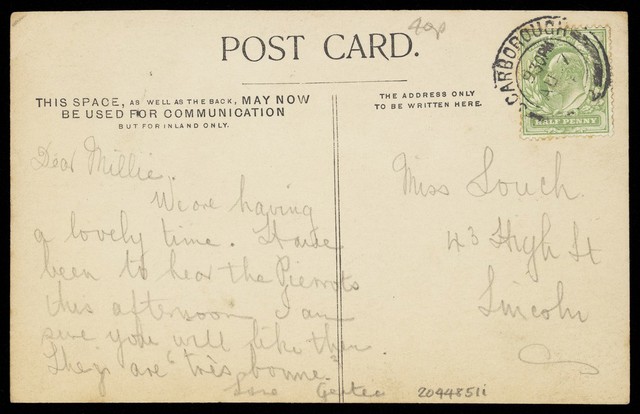 40p
POST CARD.
SCARBOROUGH
9.30PM
AU 7
HALF PENNY
THIS SPACE, AS WELL AS THE BACK, MAY NOW
BE USED FOR COMMUNICATION
BUT FOR INLAND ONLY.
THE ADDRESS ONLY
TO BE WRITTEN HERE.
Dear Millie.
We are having
a lovely time. Have
been to hear the Pierrots
this afternoon, I am
sure you will like them
They are "très bonne."
Love
Miss Louch.
43 High St
Lincoln
2044851i